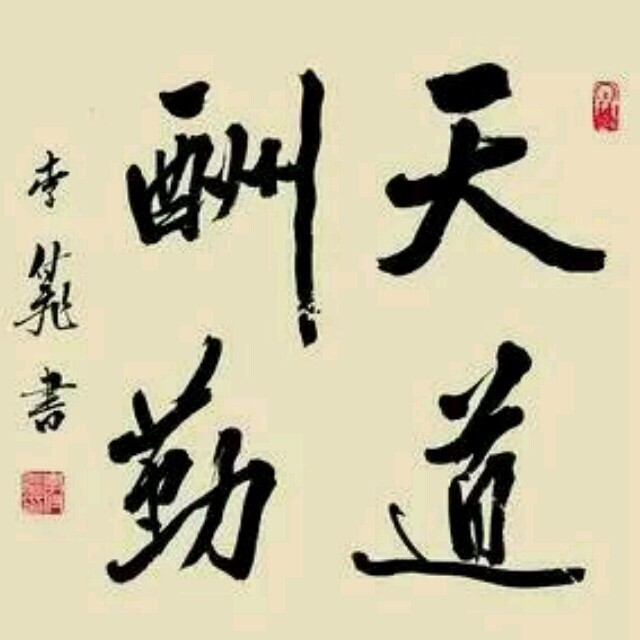 天道
酬勤
李 書